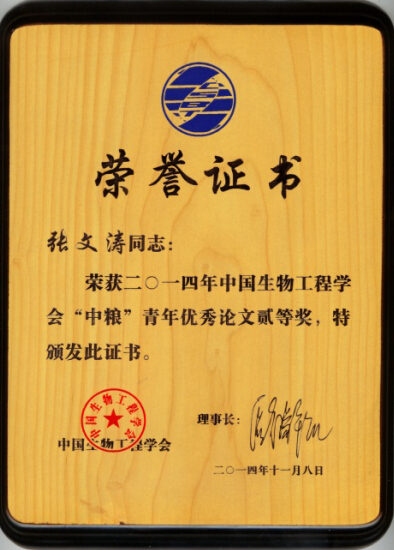 荣誉证书
张文涛同志：
荣获二〇一四年中国生物工程学
会“中粮”青年优秀论文贰等奖，特
颁发此证书。
中国生物工程学会
理事长：
中国生物工程学会
二〇一四年十一月八日